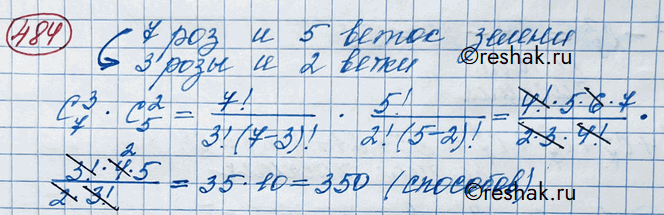 484
7 роз и 5 веток зелени
3 розы и 2 ветки
©reshak.ru
C₇³ · C₅² = 7!/3!(7-3)! · 5!/2!(5-2)! = 4!·5·6·7/2·3·4! ·
3!·4·5/2·3! = 35·10 = 350 (способов)
2
©reshak.ru